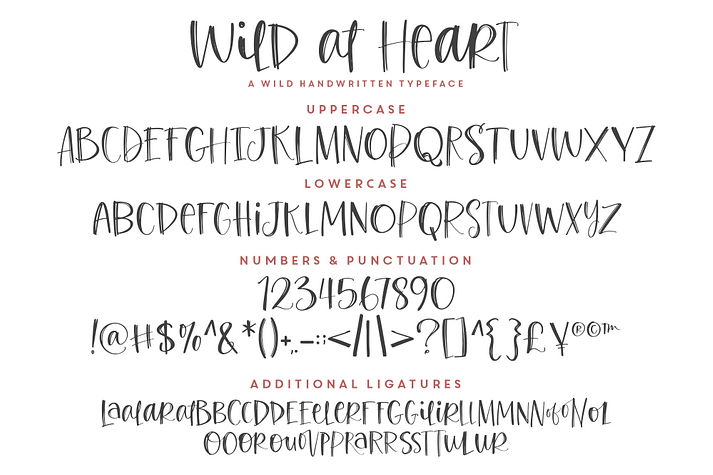 Wild at Heart
A WILD HANDWRITTEN TYPEFACE
UPPERCASE
ABCDEFGHIJKLMNOPQRSTUVWXYZ
LOWERCASE
ABCDeFGHiJKLMNOPQRSTUVWXyZ
NUMBERS & PUNCTUATION
1234567890
!@#$%^&*()+,.–:;</|\>?[]^{}£¥®©™
ADDITIONAL LIGATURES